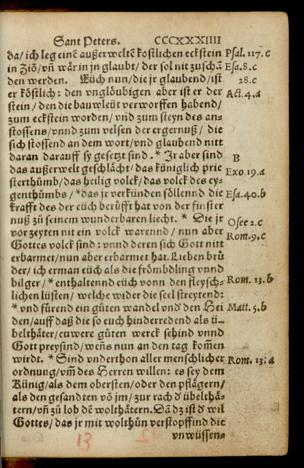 Sant Peters. CCCXXXIIII
da/ ich leg einē außerweltē kostlichen eckstein Psal. 117. c
in Ziō/ vñ wär in jn glaubt/ der sol nit zuschā Esa. 8. c
den werden. Eüch nun/ die jr glaubend/ ist 28. c
er köstlich: den vnglöubigen aber ist er der Act. 4. a
stein/ den die bauwleüt verworffen habend/
zum eckstein worden/ vnd zum steyn des an-
stossens/ vnnd zum velsen der ergernuß/ die
sich stossend an dem wort/ vnd glaubend nitt
daran darauff sy gesetzt sind. * Jr aber sind B
das außerwelt geschlächt/ das küniglich prie Exo. 19. a
sterthümb/ das heilig volck/ das volck des ey-
genthumbs/ * das jr verkünden söllennd die Esa. 40. b
krafft des der eüch berüfft hat von der finster
nuß zů seinem wunderbaren liecht. * Die jr Osee 2. c
vorzeyten nit ein volck warennd/ nun aber Rom. 9. c
Gottes volck sind: vnnd deren sich Gott nitt
erbarmet/ nun aber erbarmet hat. Lieben brů
der/ ich erman eüch als die frömbdling vnnd
bilger/ * enthaltennd eüch vonn den fleysch- Rom. 13. b
lichen lüsten/ welche wider die seel streytend:
* vnd fürend ein gůten wandel vnd den Hei Matt. 5. b
den/ auff daß die so euch hinderredend als ü-
belthäter/ euwere gůten werck sehind vnnd
Gott preysind/ wenns nun an den tag komen
wirdt. * Sind vnderthon aller menschlicher Rom. 13. a
ordnung/ vm̄ des Herren willen: es sey dem
Künig/ als dem obersten/ oder den pflägern/
als den gesandten vō jm/ zur rach d̓ übelthä-
tern/ vñ zů lob dē wolthätern. Dā dz ist d̓ wil
Gottes/ das jr mit wolthůn verstopffind die
vnwüssen-
13